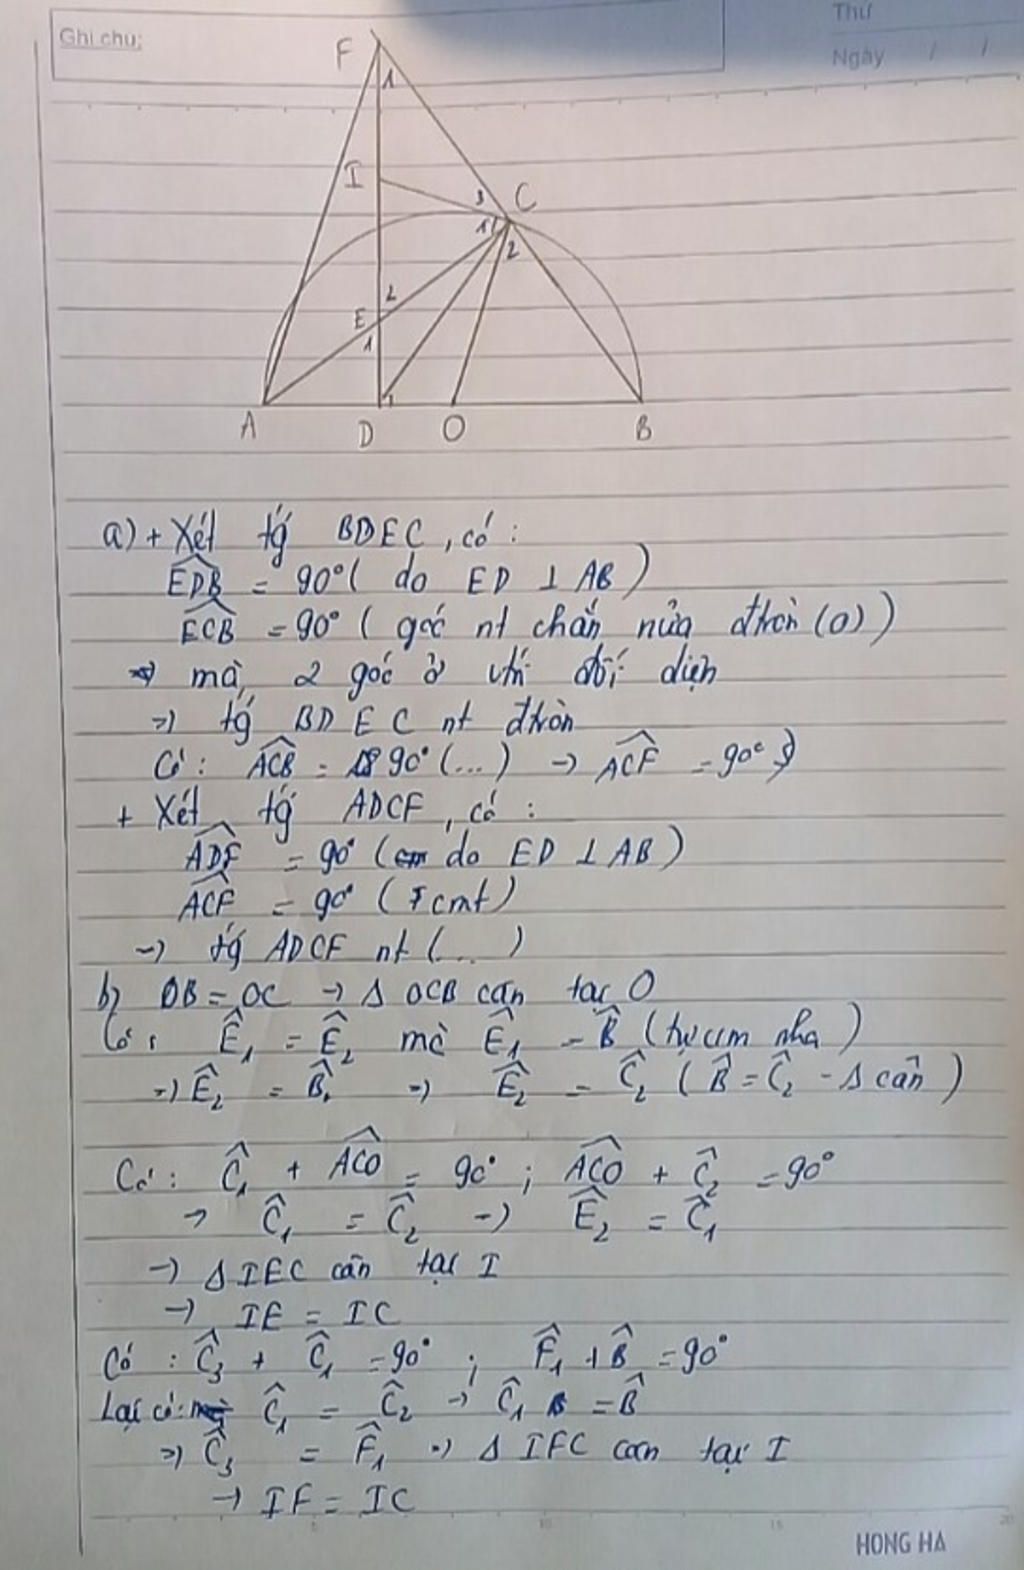 Ghi chú:
Thứ
Ngày / /
F
1
I
3
C
1
2
2
E
1
1
A
D
O
B
a) + Xét tg BDEC, có:
EDB = 90° ( do ED ⊥ AB )
ECB = 90° ( góc nt chắn nửa đtròn (O) )
=> mà, 2 góc ở vtrí đối diện
=> tg BDEC nt đtròn
Có: ACB = 90° (...) -> ACF = 90°
+ Xét tg ADCF, có:
ADF = 90° ( do ED ⊥ AB )
ACF = 90° ( cmt)
-> tg ADCF nt (...)
b) OB = OC -> Δ OCB cân tại O
Có: Ê₁ = Ê₂ mà Ê₁ = B̂ (tự cm nha)
=> Ê₂ = B̂ => Ê₂ = Ĉ₂ ( B̂ = Ĉ₂ - Δ cân )
Có: Ĉ₁ + ACO = 90° ; ACO + Ĉ₂ = 90°
-> Ĉ₁ = Ĉ₂ -> Ê₂ = Ĉ₁
-> Δ IEC cân tại I
-> IE = IC
Có : Ĉ₃ + Ĉ₁ = 90° ; F̂₁ + B̂ = 90°
Lại có: Ĉ₁ = Ĉ₂ -> Ĉ₁ = B̂
=> Ĉ₃ = F̂₁ => Δ IFC can tại I
-> IF = IC
5 10 15 20
HONG HA